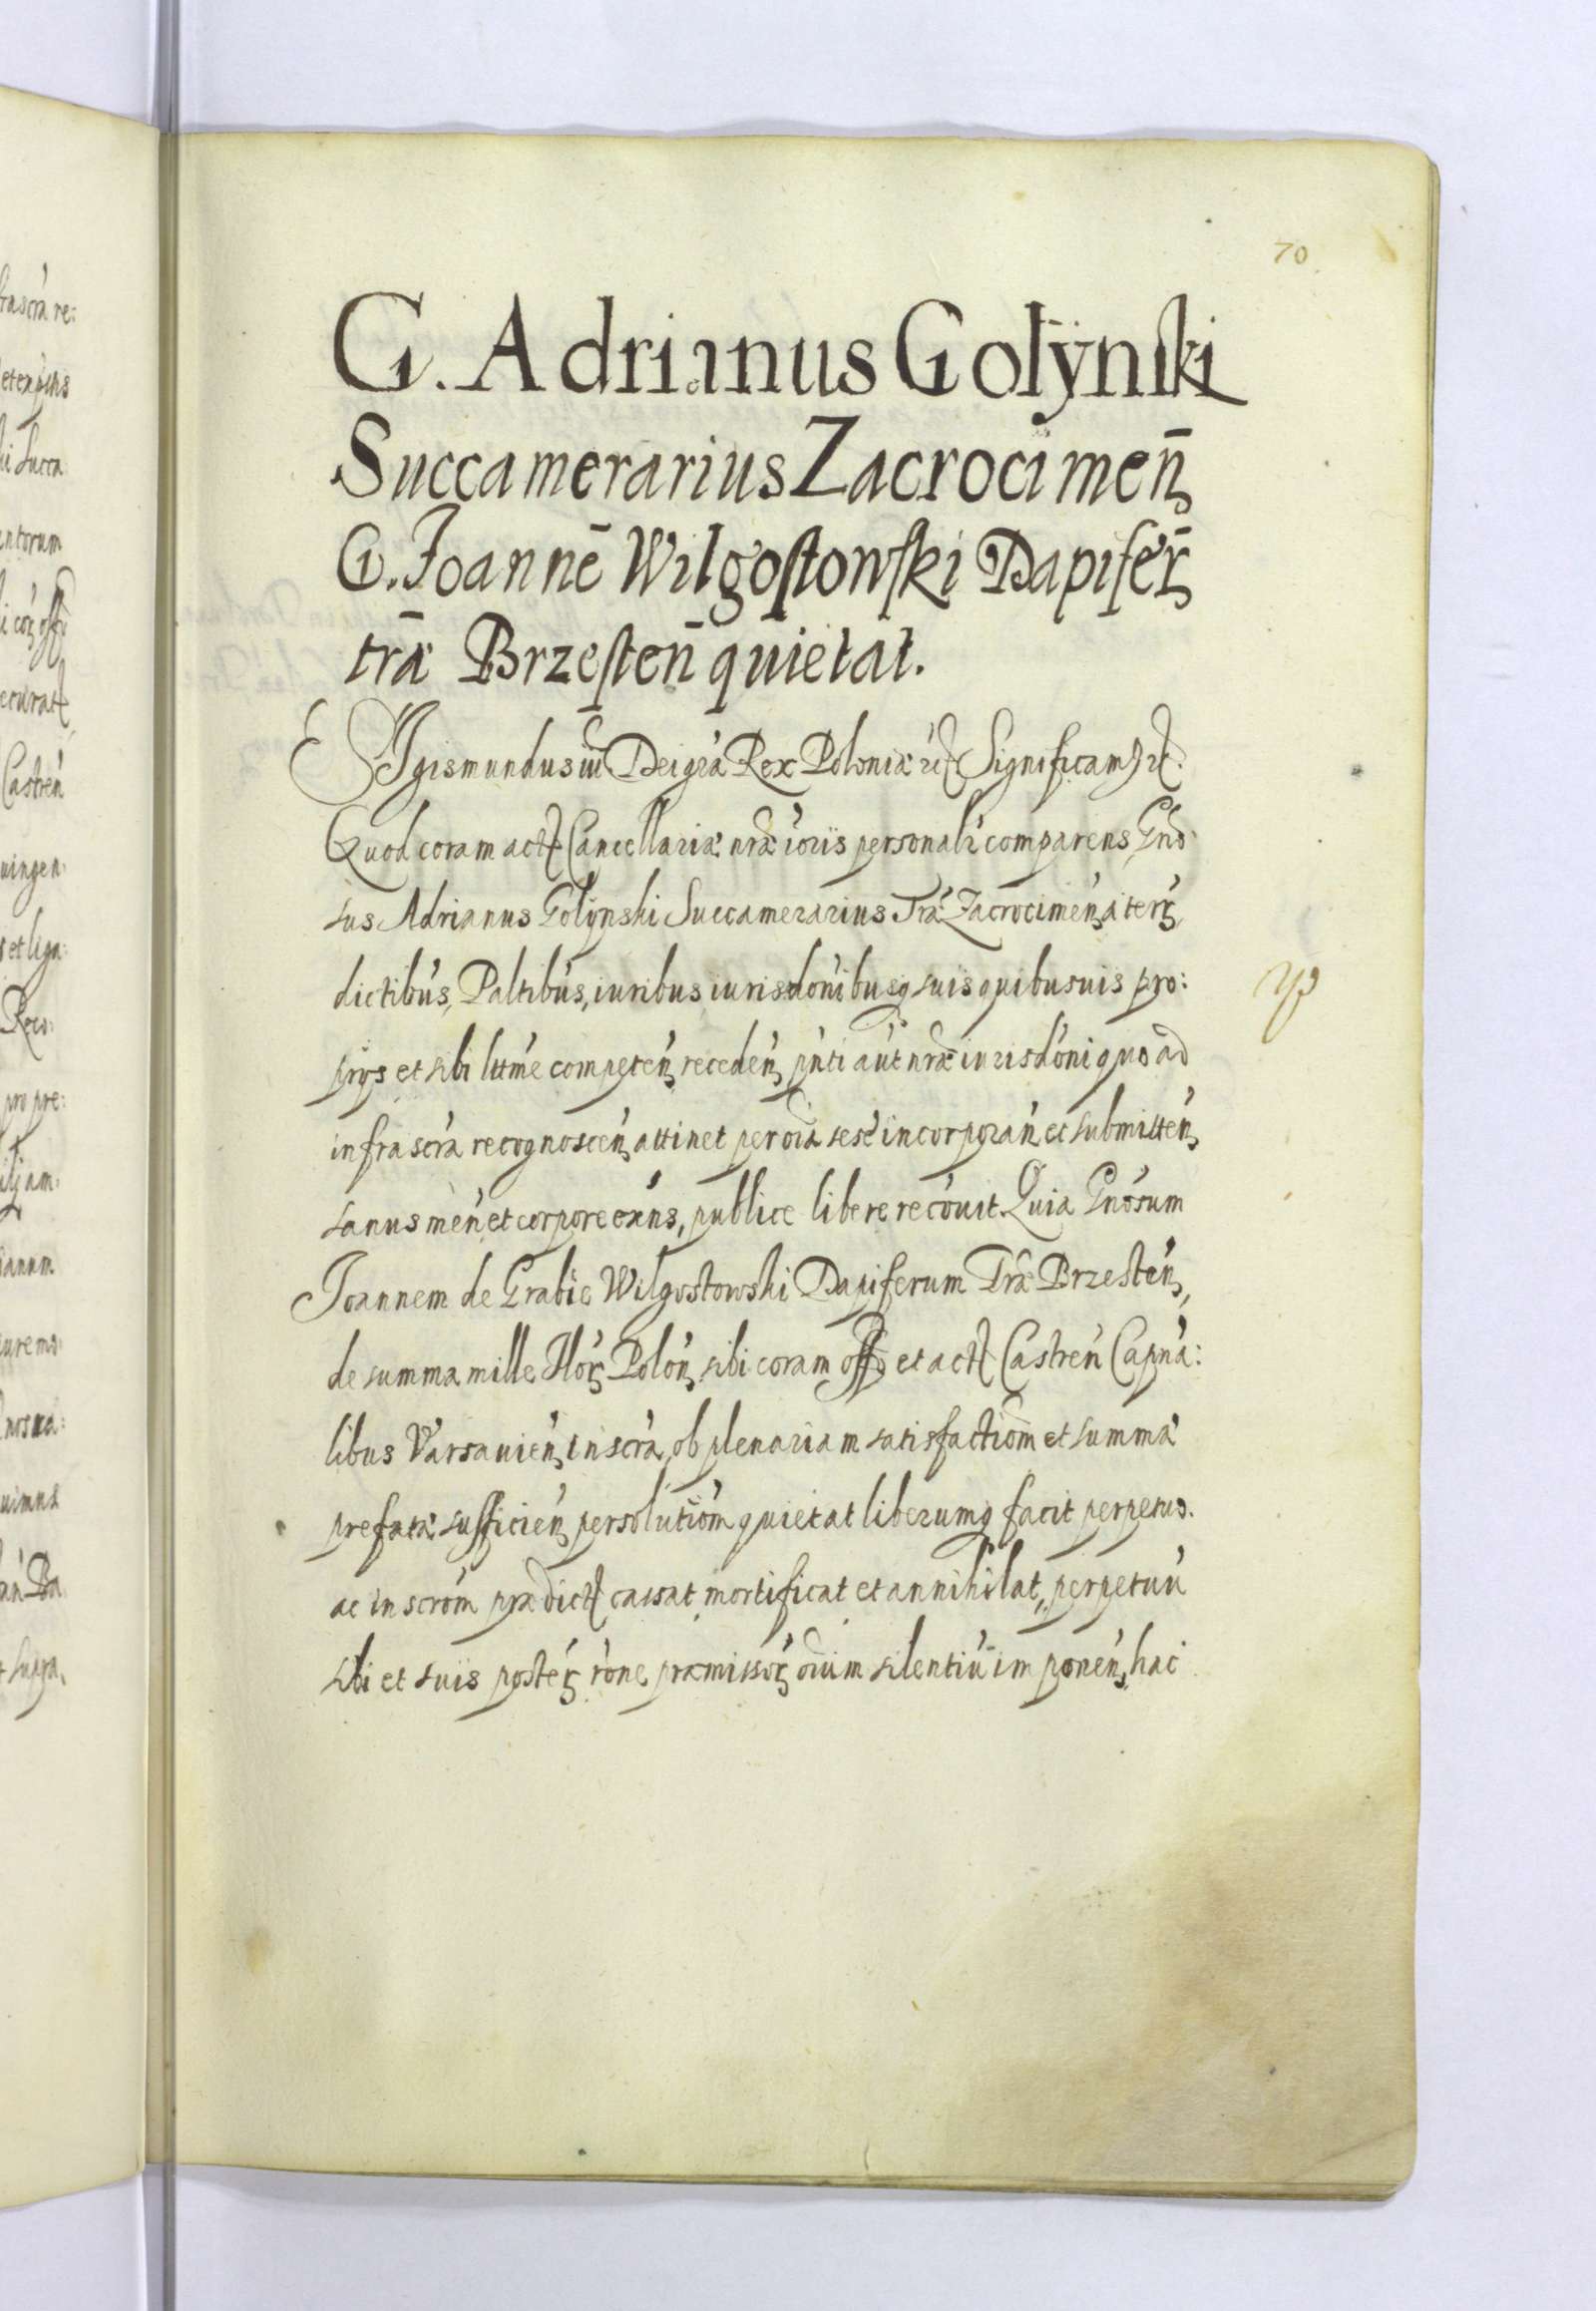 70
G. Adrianus Golÿnski
Succamerarius Zacrocimen̄
G. Joannē Wilgostowski Dapifer̄
trae Brzesten̄ quietat.
SJgismundus iii Dei gra Rex Poloniae etc Significamus etc.
Quod coram actis Cancellariae nrae ioris personalr comparens Gnō:
sus Adrianus Golÿnski Succamerarius Trae Zacrocimen, a terr,
dictibus, Paltibus, iuribus iurisdonibusq suis quibusuis pro:
prijs et sibi lttme competen, receden, pnti aut nrae iurisdoni quo ad
infrascra recognoscen, attinet per oia sese incorporan et submitten,
sanus men et corpore exns, publice libere recouit. Quia Gnosum
Joannem de Grabie Wilgostowski Dapiferum Trae Brzesten,
de summa mille Flor, Polon, sibi coram offo et actis Castren Capna:
libus Varsauien, inscra, ob plenariam satisfactiom et summae
prefatae sufficien, persolutiom quietat liberumq facit perpetuo.
ac inscrom praedictis cassat, mortificat et annihilat, perpetuu
sibi et suis poster, rone praemissor, oium silentiu imponen, hac